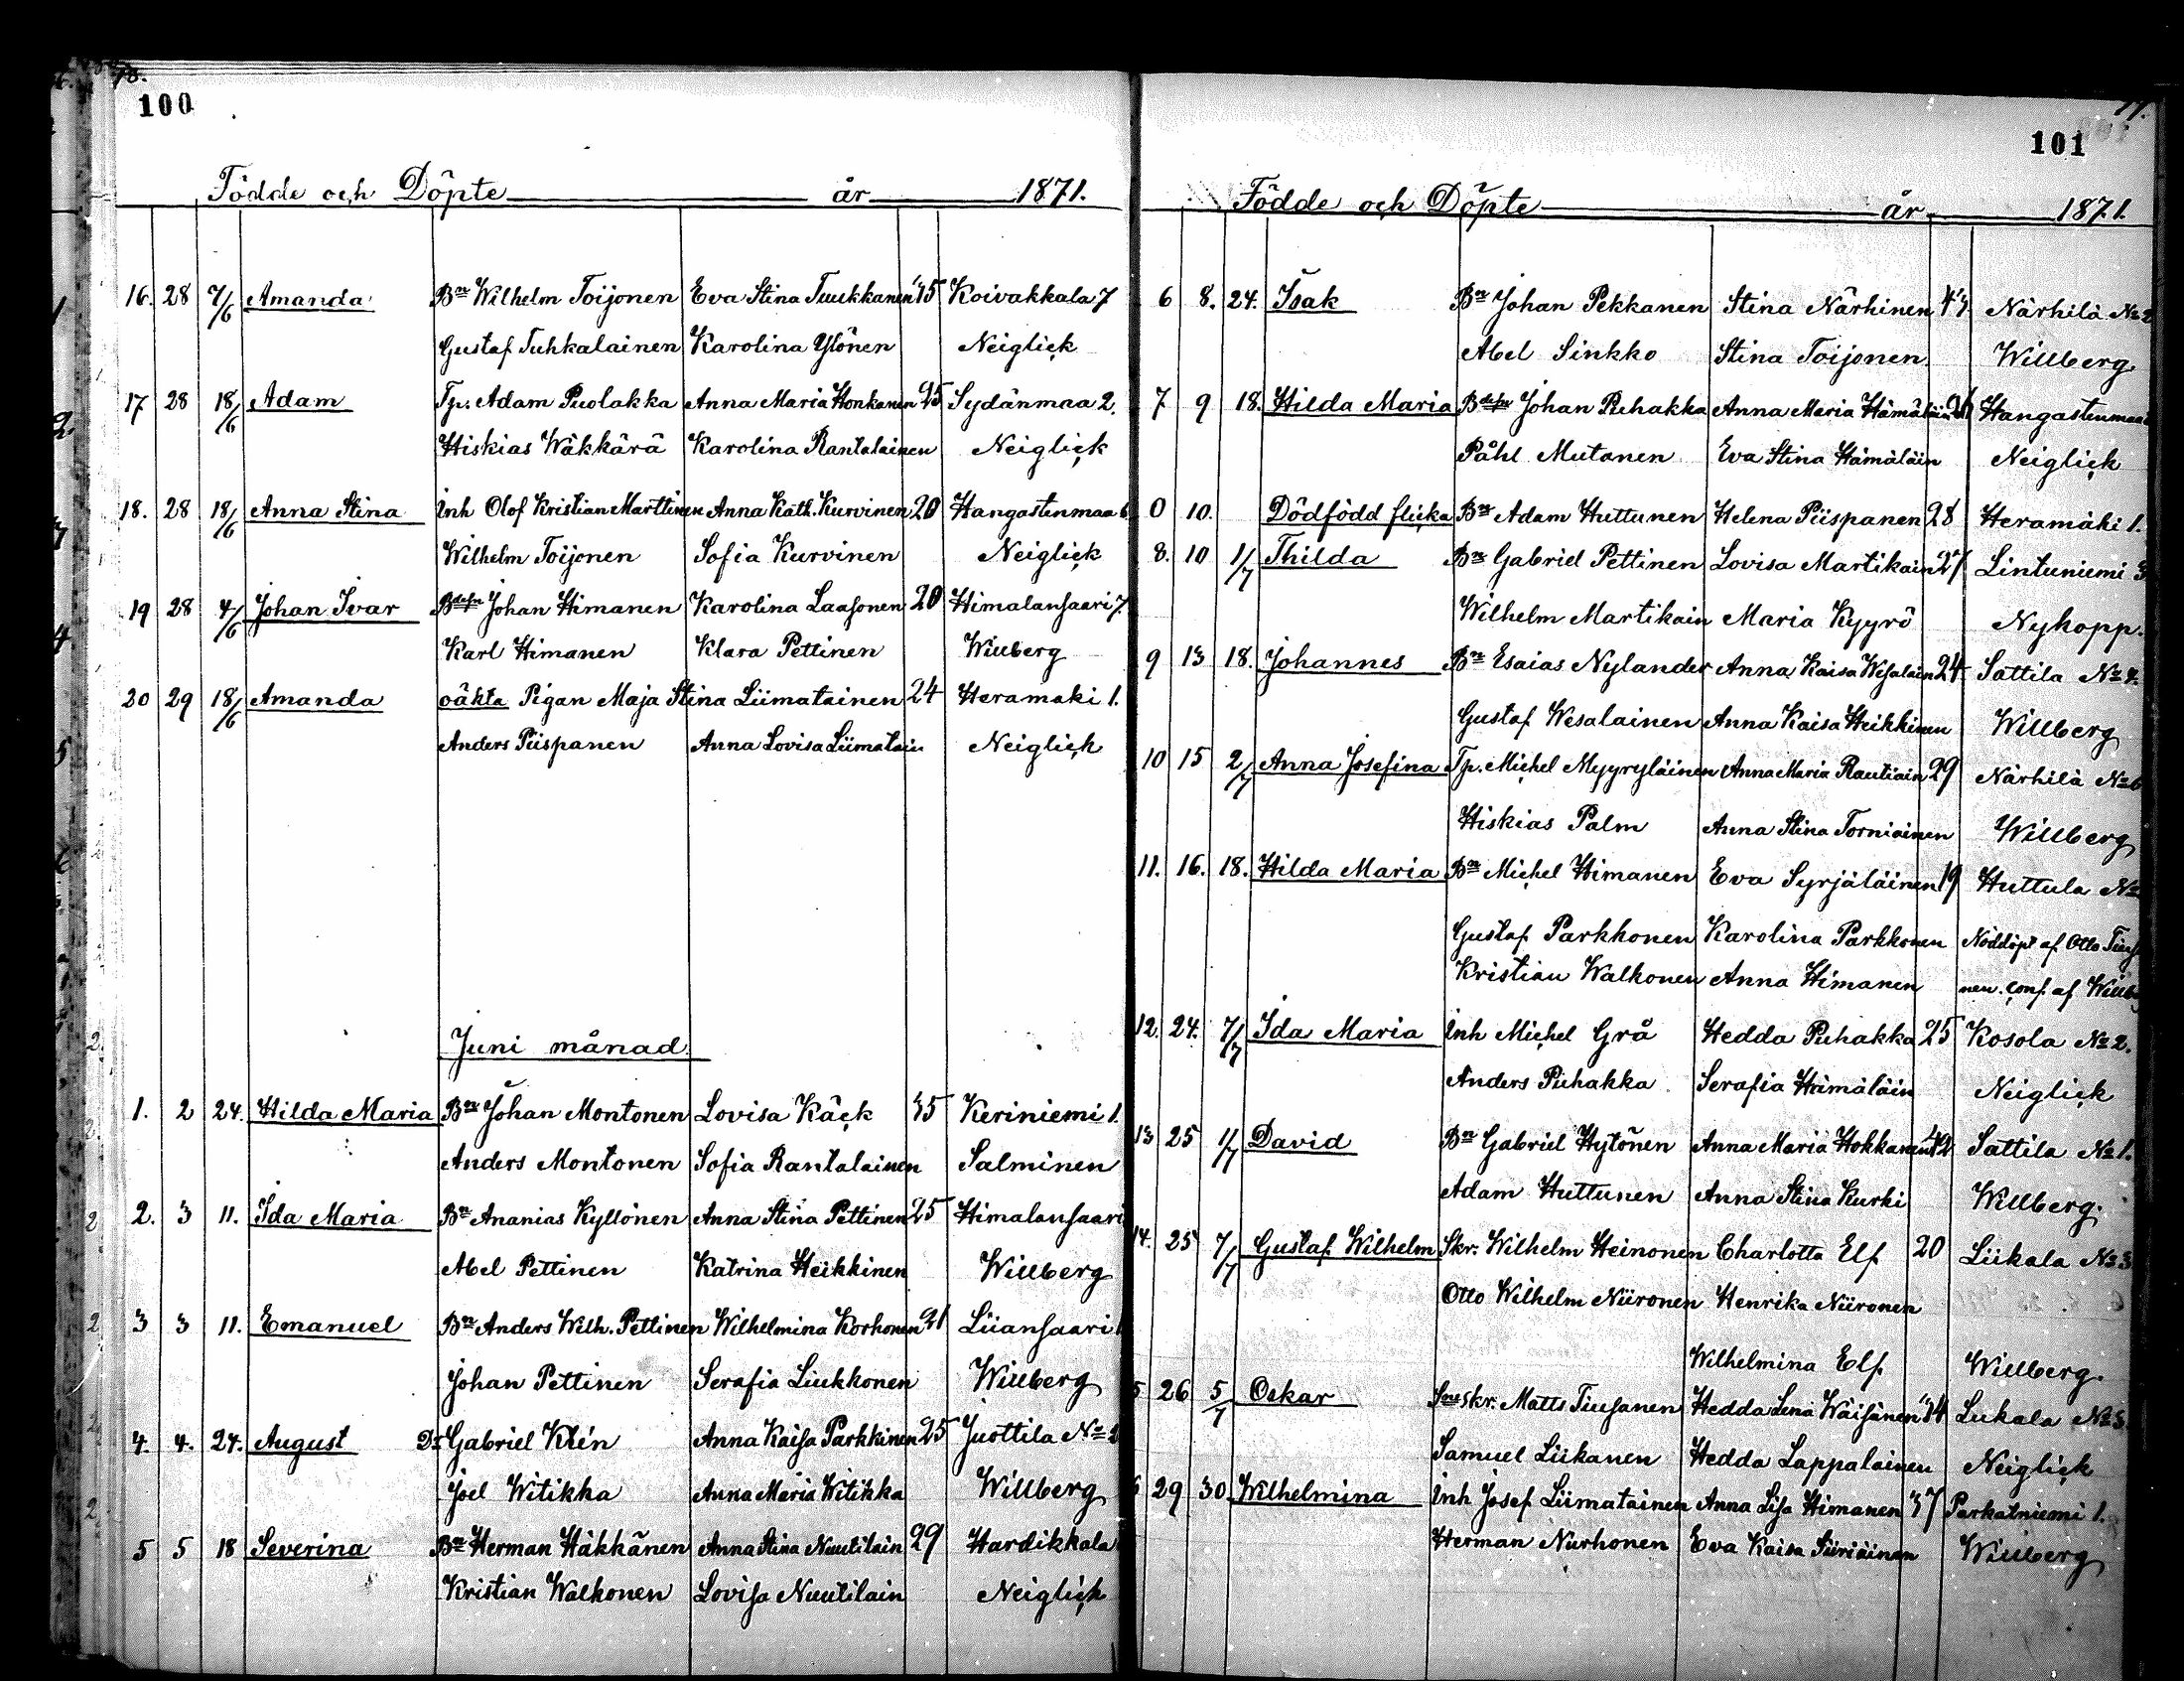 78.
100
Födde och Döpte år 1871.
16. 28 7/6 Amanda Bn Wilhelm Toijonen Eva Stina Tuukkanen 45 Koivakkala 7
Gustaf Tuhkalainen Karolina Ylönen Neiglick
17 28 18/6 Adam Tp. Adam Puolakka Anna Maria Honkanen 45 Sydänmaa 2.
Hiskias Wäkkärä Karolina Rantalainen Neiglick
18. 28 18/6 Anna Stina Inh Olof Kristian Marttinen Anna Kath. Kurvinen 20 Hangastenmaa 6
Wilhelm Toijonen Sofia Kurvinen Neiglick
19 28 4/6 Johan Ivar Bdesn Johan Himanen Karolina Laasonen 20 Himalansaari 7.
Karl Himanen Klara Pettinen Willberg
20 29 18/6 Amanda oäkta Pigan Maja Stina Liimatainen 24 Heramaki 1.
Anders Piispanen Anna Lovisa Liimatain Neiglick
Juni månad.
1. 2 24. Hilda Maria Bn Johan Montonen Lovisa Käck 35 Keriniemi 1.
Anders Montonen Sofia Rantalainen Salminen
2. 3 11. Ida Maria Bn Ananias Kyllönen Anna Stina Pettinen 25 Himalansaari
Abel Pettinen Katrina Heikkinen Willberg
3 3 11. Emanuel Bn Anders Wilh. Pettinen Wilhelmina Korhonen 21 Liiansaari 1
Johan Pettinen Serafia Liukkonen Willberg
4. 4. 24. August Dr Gabriel Klén Anna Kaisa Parkkinen 25 Juottila No 2
Joel Witikka Anna Maria Witikka Willberg
5 5 18 Severina Bn Herman Häkkänen Anna Stina Nuutilain 29 Hardikkala
Kristian Walkonen Lovisa Nuutilain Neiglick
101
Födde och Döpte år 1871.
6 8. 24. Isak Bn Johan Pekkanen Stina Närhinen 43 Närhilä No 2
Abel Sinkko Stina Toijonen Willberg
7 9 18. Hilda Maria Bdesn Johan Puhakka Anna Maria Hämäläin Hangastenmaa
Påhl Mutanen Eva Stina Hämäläin Neiglick
0 10. Dödfödd flicka Bn Adam Huttunen Helena Piispanen 28 Heramäki 1.
8. 10 1/7 Thilda Bn Gabriel Pettinen Lovisa Martikain 27 Lintuniemi 3
Wilhelm Martikain Maria Kyyrö Nykopp.
9 13 18. Johannes Bn Esaias Nylander Anna Kaisa Wesalain 24 Sattila No 4.
Gustaf Wesalainen Anna Kaisa Heikkinen Willberg
10 15 2/7 Anna Josefina Tp. Michel Myyryläinen Anna Maria Rautiain 29 Närhilä No 6
Hiskias Palm Anna Stina Torniainen Willberg
11. 16. 18. Hilda Maria Bn Michel Himanen Eva Syrjäläinen 19 Huttula No
Gustaf Parkkonen Karolina Parkkonen Nöddöpt af Otto Tius
Kristian Walkonen Anna Himanen nen. conf. af Willb
12. 24. 7/7 Ida Maria Inh Michel Grå Hedda Puhakka 25 Kosola No 2.
Anders Puhakka Serafia Hämäläin Neiglick
13 25 1/7 David Bn Gabriel Hytönen Anna Maria Hokkanen 42 Sattila No 1.
Adam Huttunen Anna Stina Kurki Willberg.
14. 25 7/7 Gustaf Wilhelm Skr. Wilhelm Heinonen Charlotta Elf 20 Liikala No 3
Otto Wilhelm Niironen Henrika Niironen
Wilhelmina Elf Willberg.
5 26 5/7 Oskar Sneskr. Matts Tiusanen Hedda Lena Wäisänen 34 Lukala No 3.
Samuel Liikanen Hedda Lappalainen Neiglick
29 30 Wilhelmina Inh Josef Liimatainen Anna Lisa Himanen 37 Parkatniemi 1.
Herman Nurhonen Eva Kaisa Siiriäinen Willberg